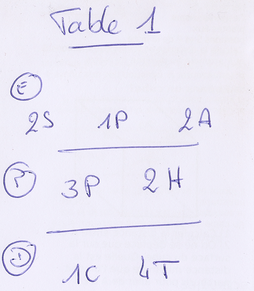 Table 1
E
2S 1P 2A
P
3P 2H
D
1C 4T